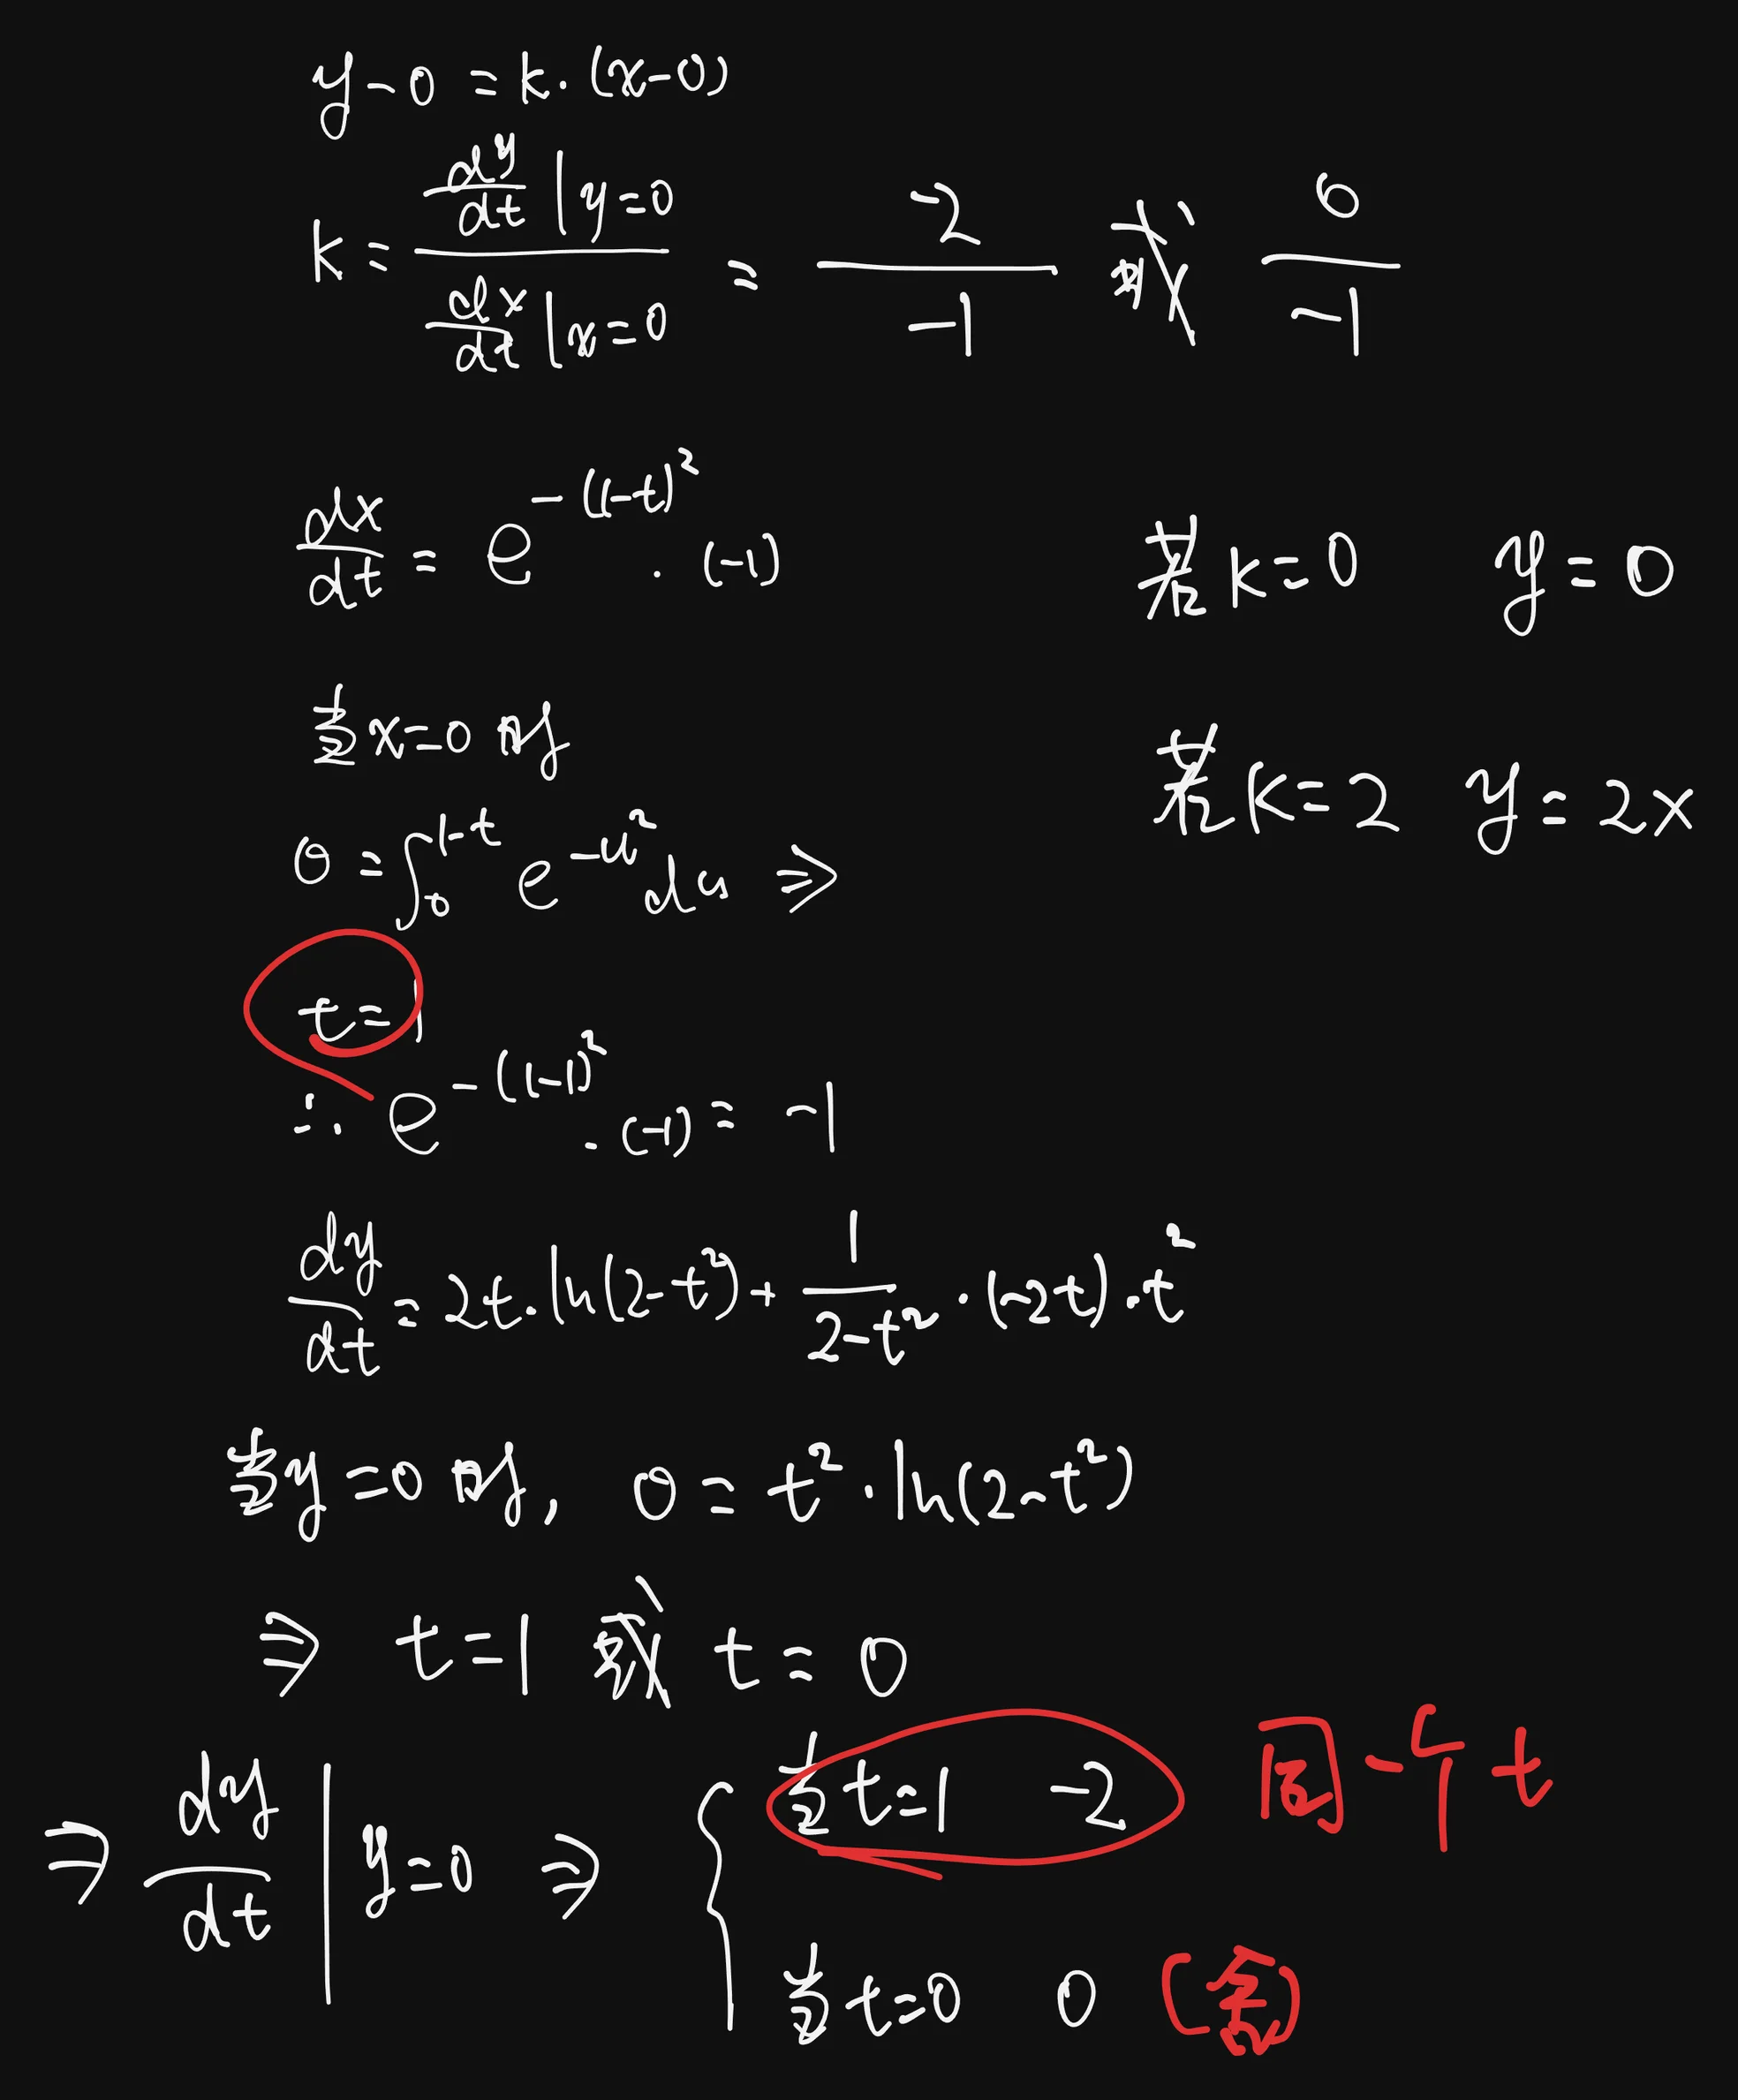 y-0 = k·(x-0)
k = (dy/dt | y=0) / (dx/dt | x=0) = -2/-1 或 0/-1
dx/dt = e^{-(1-t)^2} · (-1)
若 k=0 y=0
当 x=0 时
若 k=2 y=2x
0 = ∫_0^{1-t} e^{-u^2} du ⇒
t=1
∴ e^{-(1-1)^2} · (-1) = -1
dy/dt = 2t·ln(2-t^2) + 1/(2-t^2) · (-2t)·t^2
当 y=0 时, 0 = t^2 · ln(2-t^2)
⇒ t=1 或 t=0
⇒ dy/dt | y=0 ⇒ { 当 t=1 -2 同一个 t
当 t=0 0 (舍)